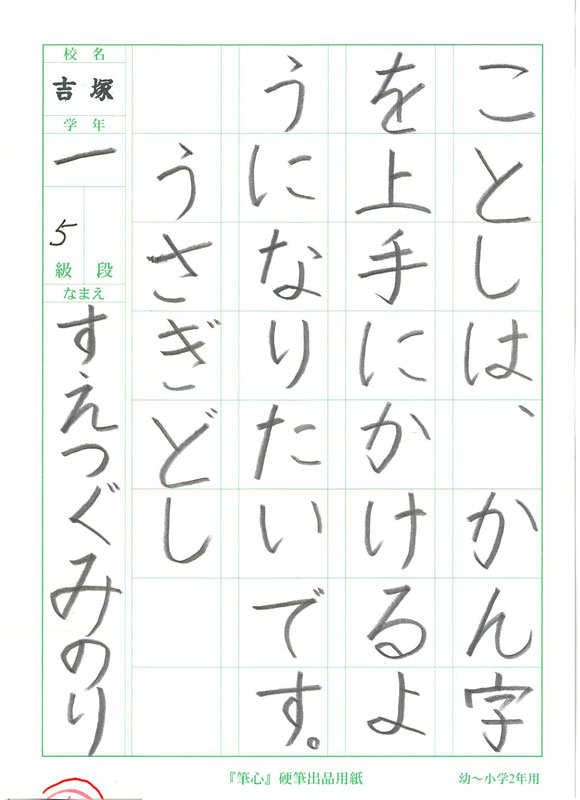 ことしは、かん字
を上手にかけるよ
うになりたいです。
うさぎどし
校名
吉塚
学年
一
5
級 段
なまえ
すえつぐみのり
『筆心』硬筆出品用紙
幼〜小学2年用